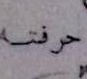 حرفته